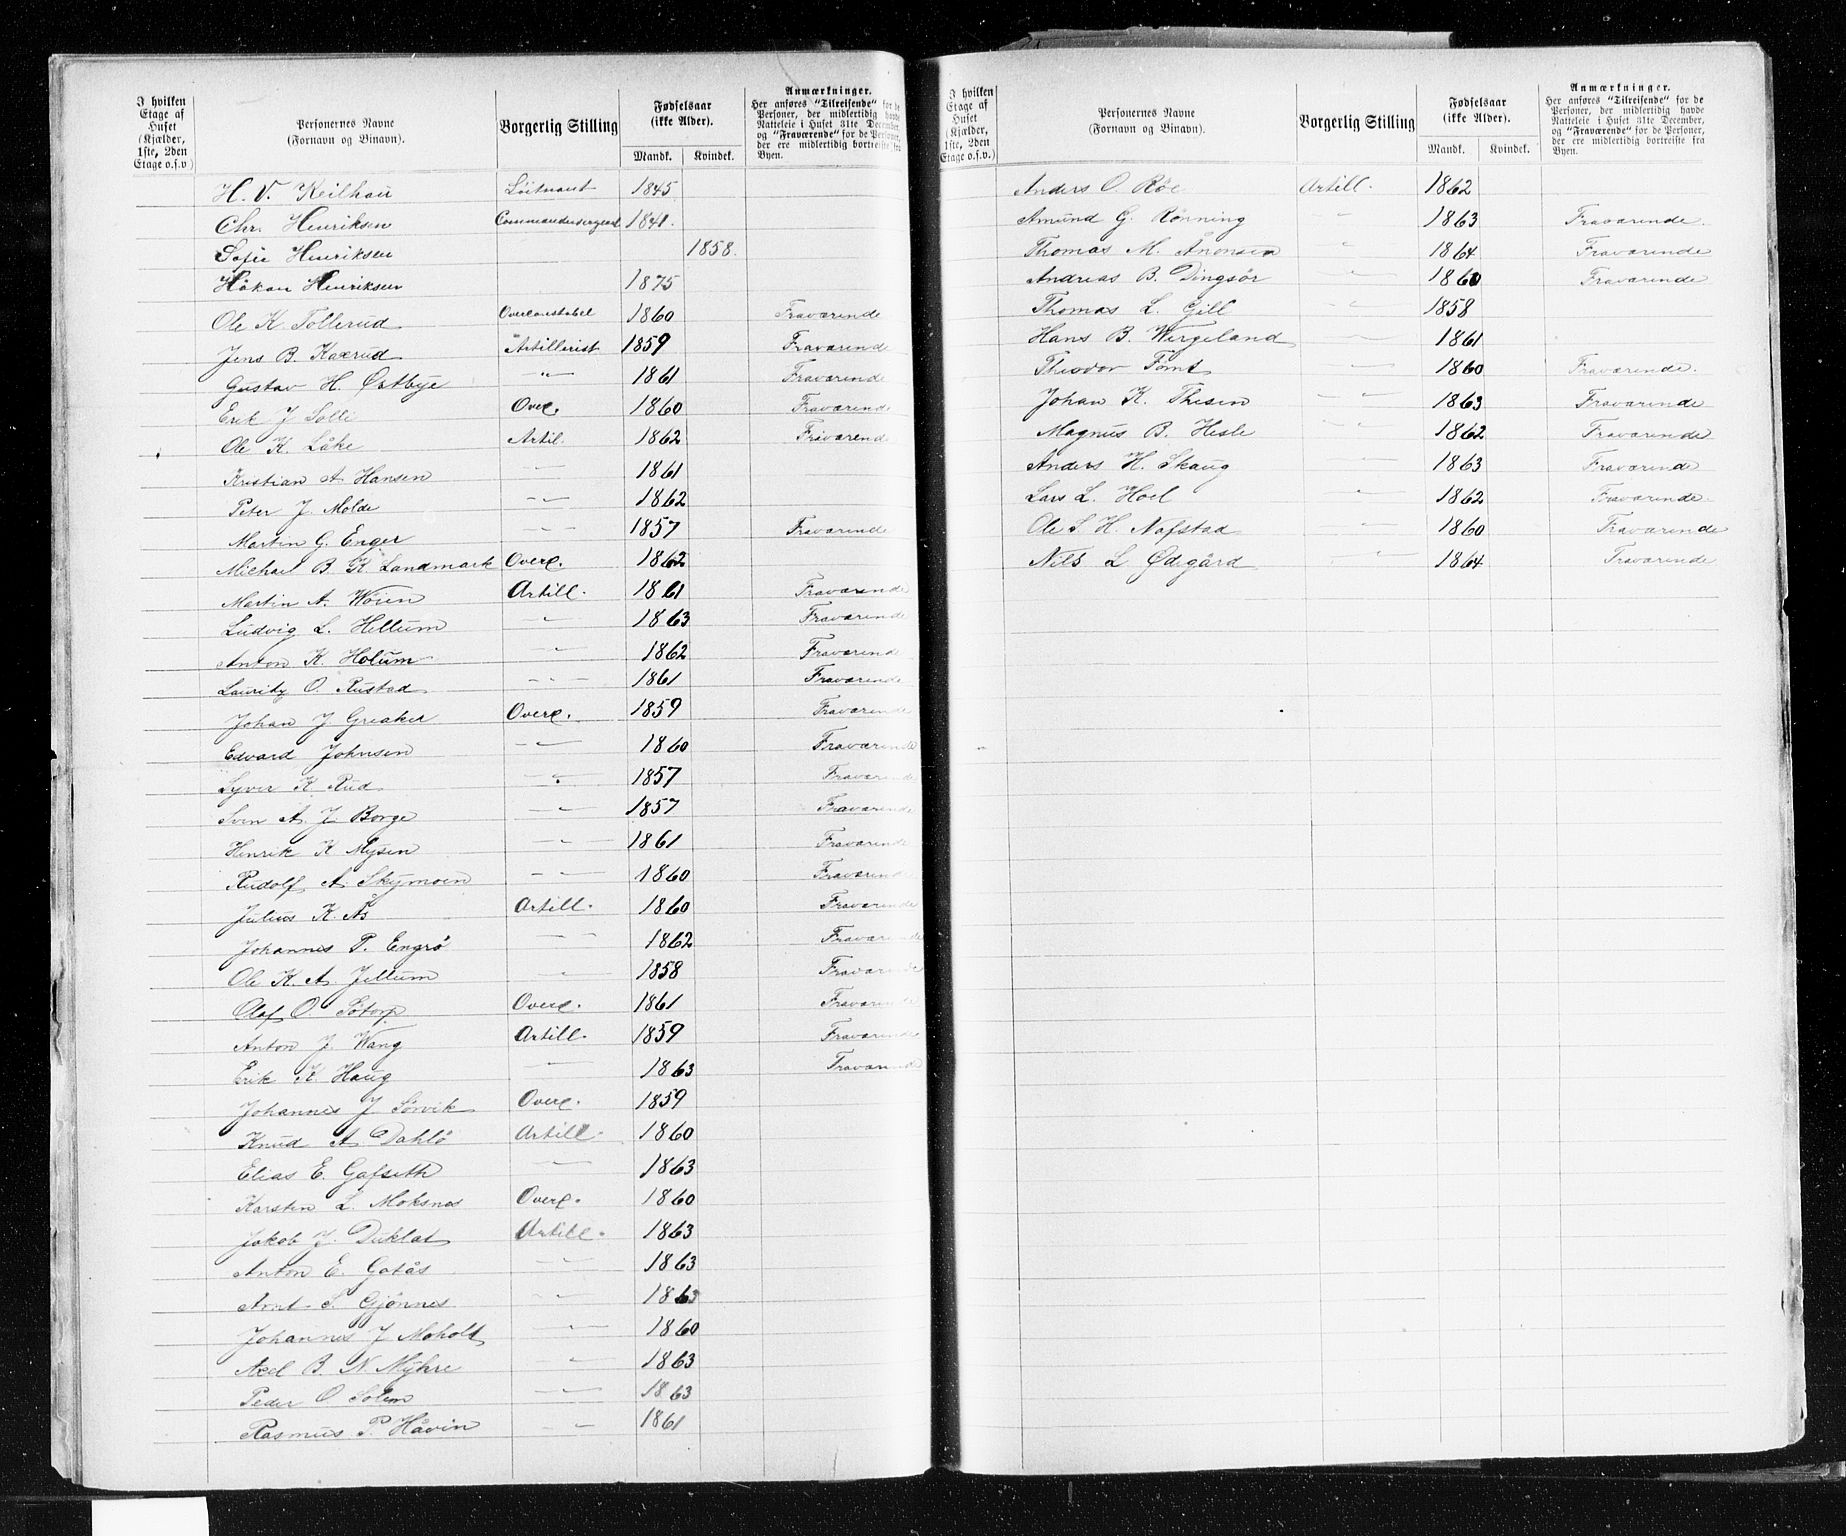 I hvilken Etage af Huset (Kjælder, 1ste, 2den Etage o.s.v.) Personernes Navne (Fornavn og Binavn). Borgerlig Stilling Fødselsaar (ikke Alder). Mandk. Kvindek. Anmærkninger. Her anføres "Tilreisende" for de Personer, der midlertidig havde Natteleie i Huset 31te December, og "Fraværende" for de Personer, der ere midlertidig bortreiste fra Byen.
H. V. Keilhau Löitnant 1845
Chr. Henriksen Commandersergeant 1841.
Sofie Henriksen 1858.
Håkon Henriksen 1875
Ole K Tollerud Overconstabel 1860 Fraværende
Jens B. Kaxrud Artillerist 1859 Fraværende
Gustav H. Østbye -"- 1861 Fraværende
Erik J Solli Overc. 1860 Fraværende
Ole K. Låke Artil. 1862 Fraværend
Kristian A Hansen -"- 1861
Peter J. Molde -"- 1862
Martin G. Enger -"- 1857 Fraværende
Michael B. K. Landmark Overc. 1862
Martin A. Woien Artill. 1861 Fraværende
Ludvig L. Hellum " 1863 Fraværende
Anton K. Holum -"- 1862 Fraværende
Lauritz O. Rustad -"- 1861 Fraværende
Johan J Greaker Overc. 1859 Fraværende
Edvard Johnsen -"- 1860 Fraværende
Syver K. Rud -"- 1857 Fraværende
Sven A. J. Borge -"- 1857 Fraværende
Henrik K Mysen " 1861 Fraværende
Rudolf A. Skymoen -"- 1860 Fraværende
Julius K. Ås Artill. 1860 Fraværende
Johannes P. Engrø -"- 1862 Fraværende
Ole K. A. Jellum " 1858 Fraværende
Olaf O. Sötorp Overc. 1861 Fraværende
Anton J. Wang Artill. 1859 Fraværende
Erik K Haug -"- 1863 Fraværende
Johannes J Sørvik Overc. 1859
Knud A. Dahlø Artill. 1860
Elias E. Gafseth -"- 1863
Karsten L. Moksnes Overc. 1860
Jakob J. Duklæt Artill. 1863
Anton E. Gatås -"- 1863
Arnt S. Gjönnes -"- 1863
Johannes J Moholt " 1860
Axel B. N. Myhre " 1863
Peder O Solem -"- 1863
Rasmus P. Håvin " 1861
I hvilken Etage af Huset (Kjælder, 1ste, 2den Etage o.s.v.) Personernes Navne (Fornavn og Binavn). Borgerlig Stilling Fødselsaar (ikke Alder). Mandk. Kvindek. Anmærkninger. Her anføres "Tilreisende" for de Personer, der midlertidig havde Natteleie i Huset 31te December, og "Fraværende" for de Personer, der ere midlertidig bortreiste fra Byen.
Anders O. Røe Artill. 1862
Amund G. Rönning " 1863 Fraværende.
Thomas M. Ånonsen " 1864 Fraværende
Andreas B. Dingsör -"- 1860 Fraværende
Thomas L. Gill -"- 1858
Hans B. Wergeland -"- 1861
Theodor Tomt -"- 1860 Fraværende.
Johan K. Thesen -"- 1863 Fraværende
Magnus B. Hesle -"- 1862 Fraværende
Anders H. Skaug -"- 1863 Fraværende
Lars L. Hoel -"- 1862 Fraværende.
Ole S. H. Nafstad -"- 1860 Fraværende
Nils L Ødegård -"- 1864 Fraværende